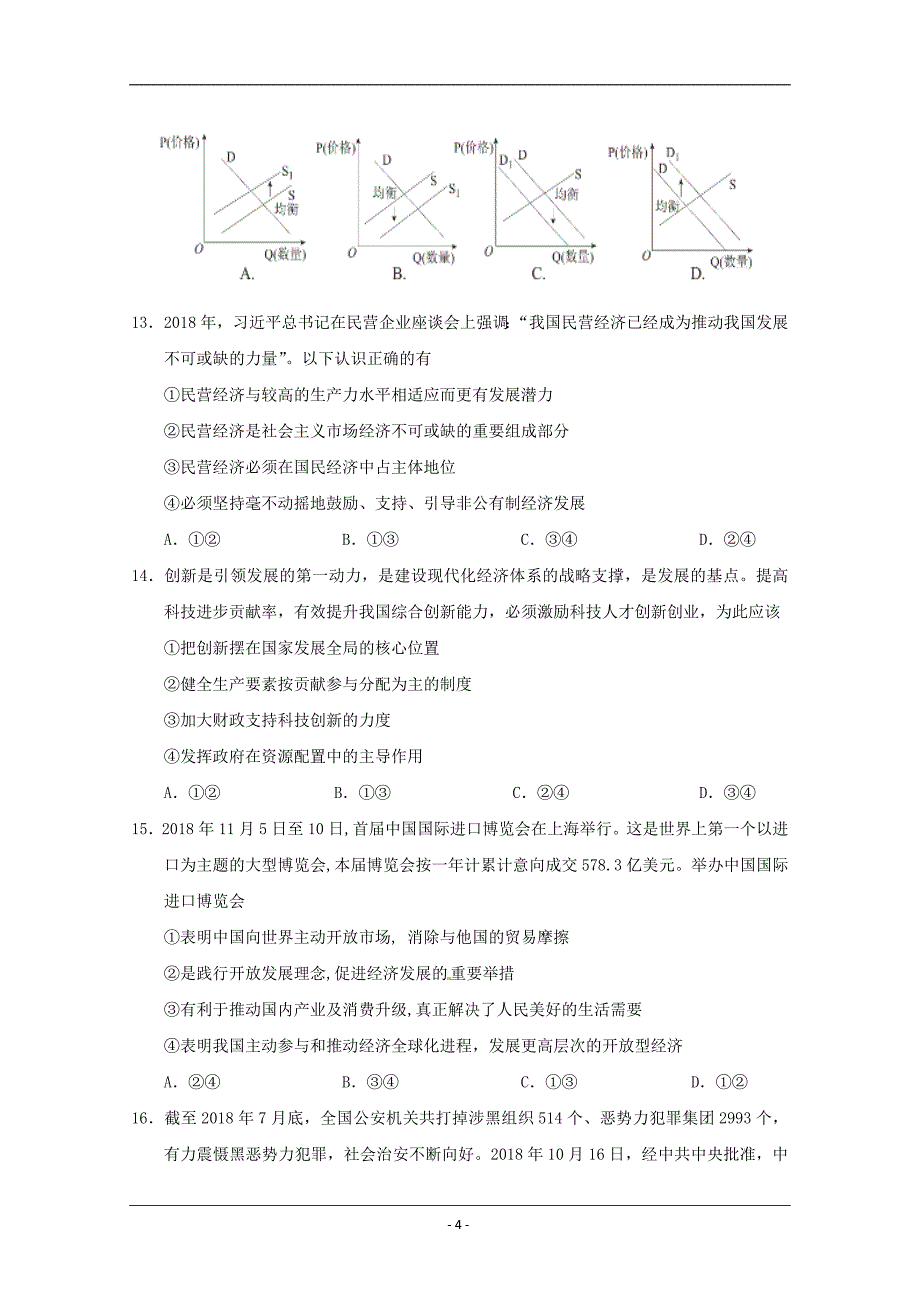 P(价格) D S1 S 均衡 O Q(数量) A.
P(价格) D 均衡 S S1 O Q(数量) B.
P(价格) D1 D S 均衡 O Q(数量) C.
P(价格) D1 D S 均衡 O Q(数量) D.
13．2018 年，习近平总书记在民营企业座谈会上强调：“我国民营经济已经成为推动我国发展
不可或缺的力量”。以下认识正确的有
①民营经济与较高的生产力水平相适应而更有发展潜力
②民营经济是社会主义市场经济不可或缺的重要组成部分
③民营经济必须在国民经济中占主体地位
④必须坚持毫不动摇地鼓励、支持、引导非公有制经济发展
A．①② B．①③ C．③④ D．②④
14．创新是引领发展的第一动力，是建设现代化经济体系的战略支撑，是发展的基点。提高
科技进步贡献率，有效提升我国综合创新能力，必须激励科技人才创新创业，为此应该
①把创新摆在国家发展全局的核心位置
②健全生产要素按贡献参与分配为主的制度
③加大财政支持科技创新的力度
④发挥政府在资源配置中的主导作用
A．①② B．①③ C．②④ D．③④
15．2018 年 11 月 5 日至 10 日,首届中国国际进口博览会在上海举行。这是世界上第一个以进
口为主题的大型博览会,本届博览会按一年计累计意向成交 578.3 亿美元。举办中国国际
进口博览会
①表明中国向世界主动开放市场, 消除与他国的贸易摩擦
②是践行开放发展理念,促进经济发展的重要举措
③有利于推动国内产业及消费升级,真正解决了人民美好的生活需要
④表明我国主动参与和推动经济全球化进程，发展更高层次的开放型经济
A．②④ B．③④ C．①③ D．①②
16．截至 2018 年 7 月底，全国公安机关共打掉涉黑组织 514 个、恶势力犯罪集团 2993 个，
有力震慑黑恶势力犯罪，社会治安不断向好。2018 年 10 月 16 日，经中共中央批准，中
- 4 -